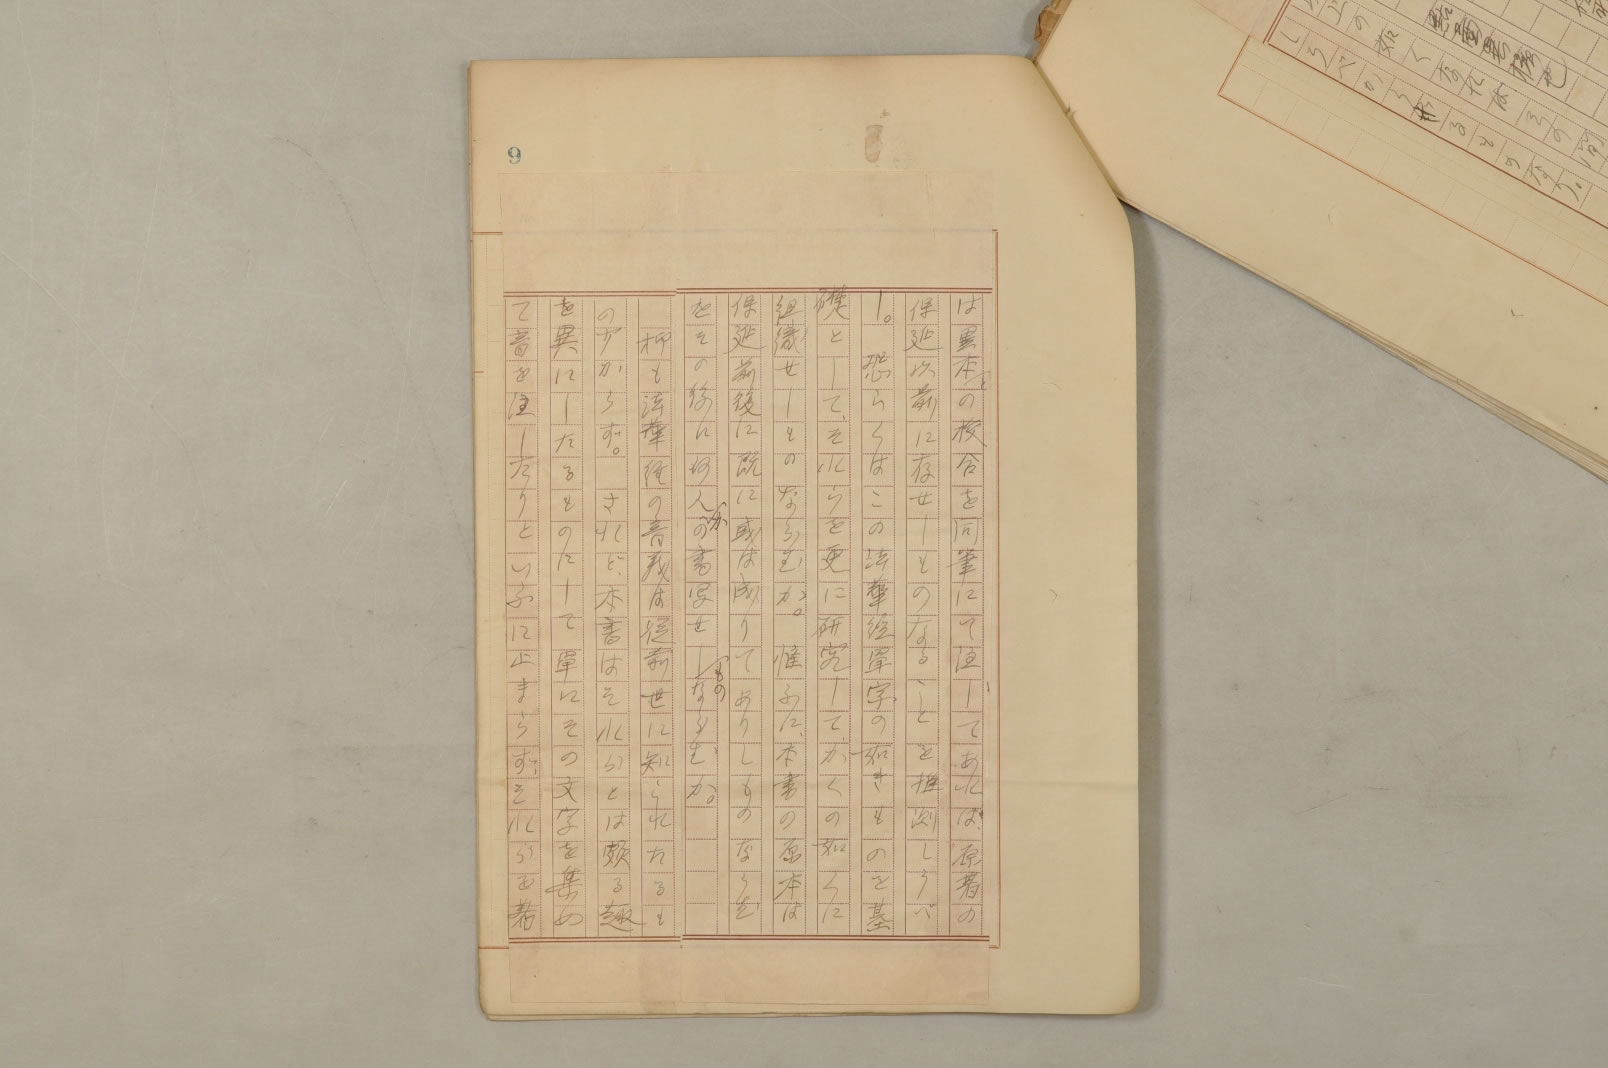 は異本との校合を同筆にて注してあれば、原著の
保延以前に存せしものなることを推測しうべ
し。恐らくはこの法華経単字の如きものを基
礎として、それらを更に研究して、かくの如くに
組織せしものならむか。惟ふに、本書の原本は
保延前後に既に或は成りてありしものならむ
をその後に何人かの書写せしものならむか。
抑も法華経の音義は従前世に知られたるも
の少からず。されど、本書はそれらとは頗る趣
を異にしたるものにして単にその文字を集め
て音を注したりといふに止まらず、それらを著
9
点画男移也
以上の如くなれば、その間
しるべからざるものなり。